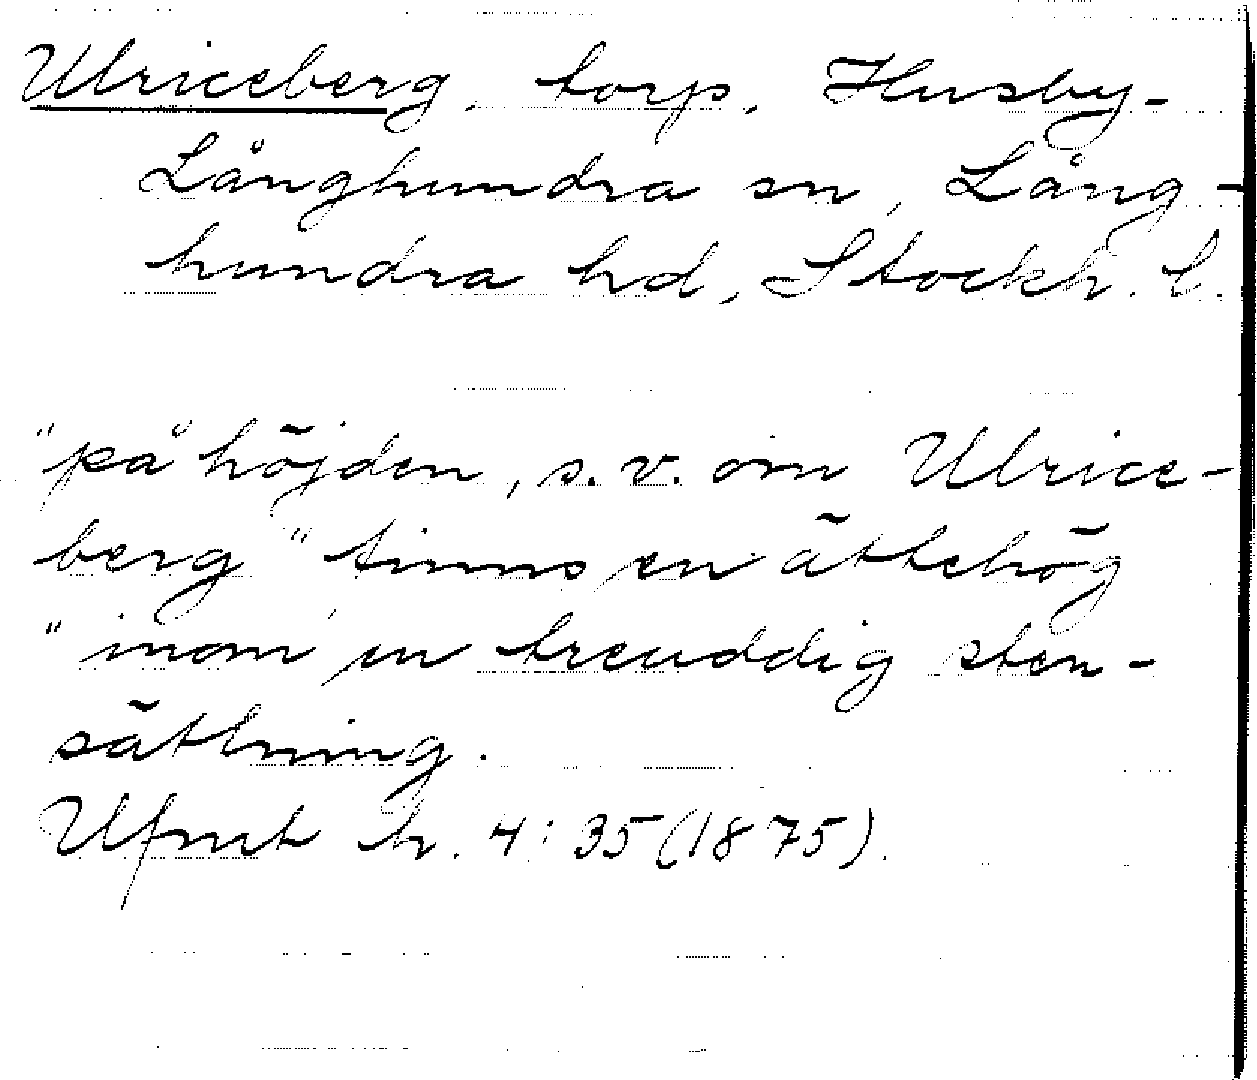 Ulriceberg, torp, Husby-
Långhundra sn, Lång-
hundra hd, Stockh. l.
"på höjden, s.v. om Ulrice-
berg" finns en ättehög
"inom en treuddig sten-
sättning.
Ufmt h. 4:35 (1875).